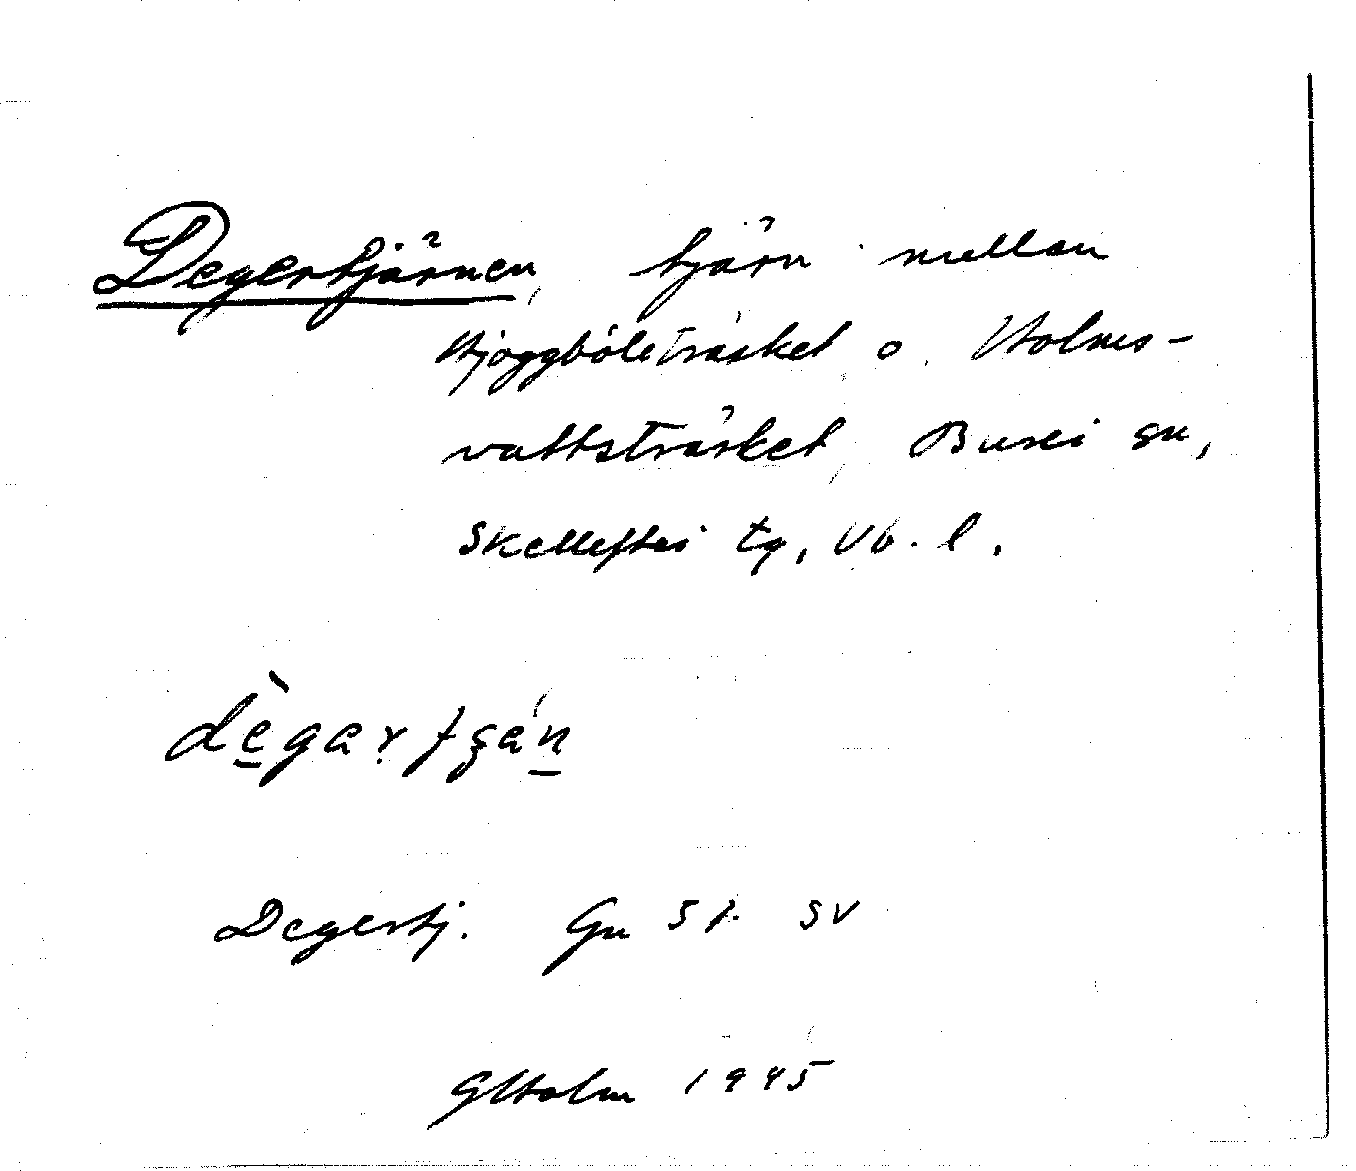 Degertjärnen, tjärn mellan
Hjoggböleträsket o. Holms-
vattsträsket, Bureå sn,
Skellefteå tg, Vb. l.
dègarţşän
Degertj. Gn 51 SV
GHolm 1945